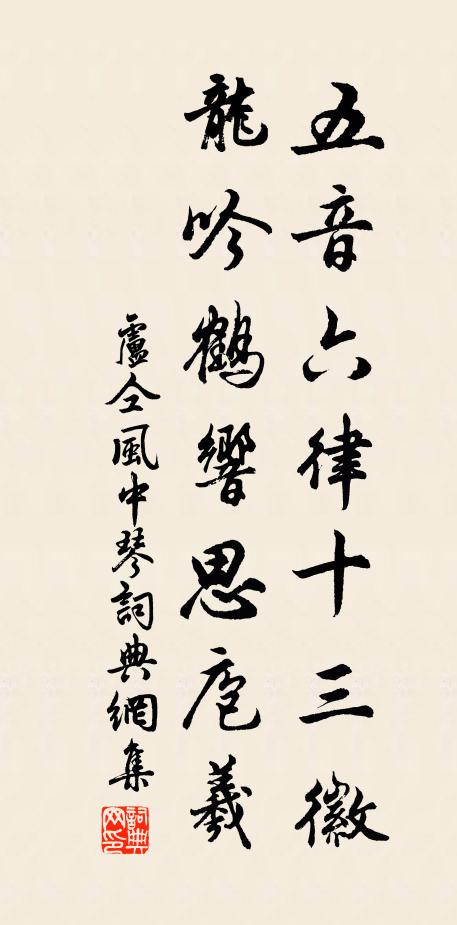 五音六律十三徽
龍吟鶴響思庖羲
盧仝風中琴詞典網集
詞典网印